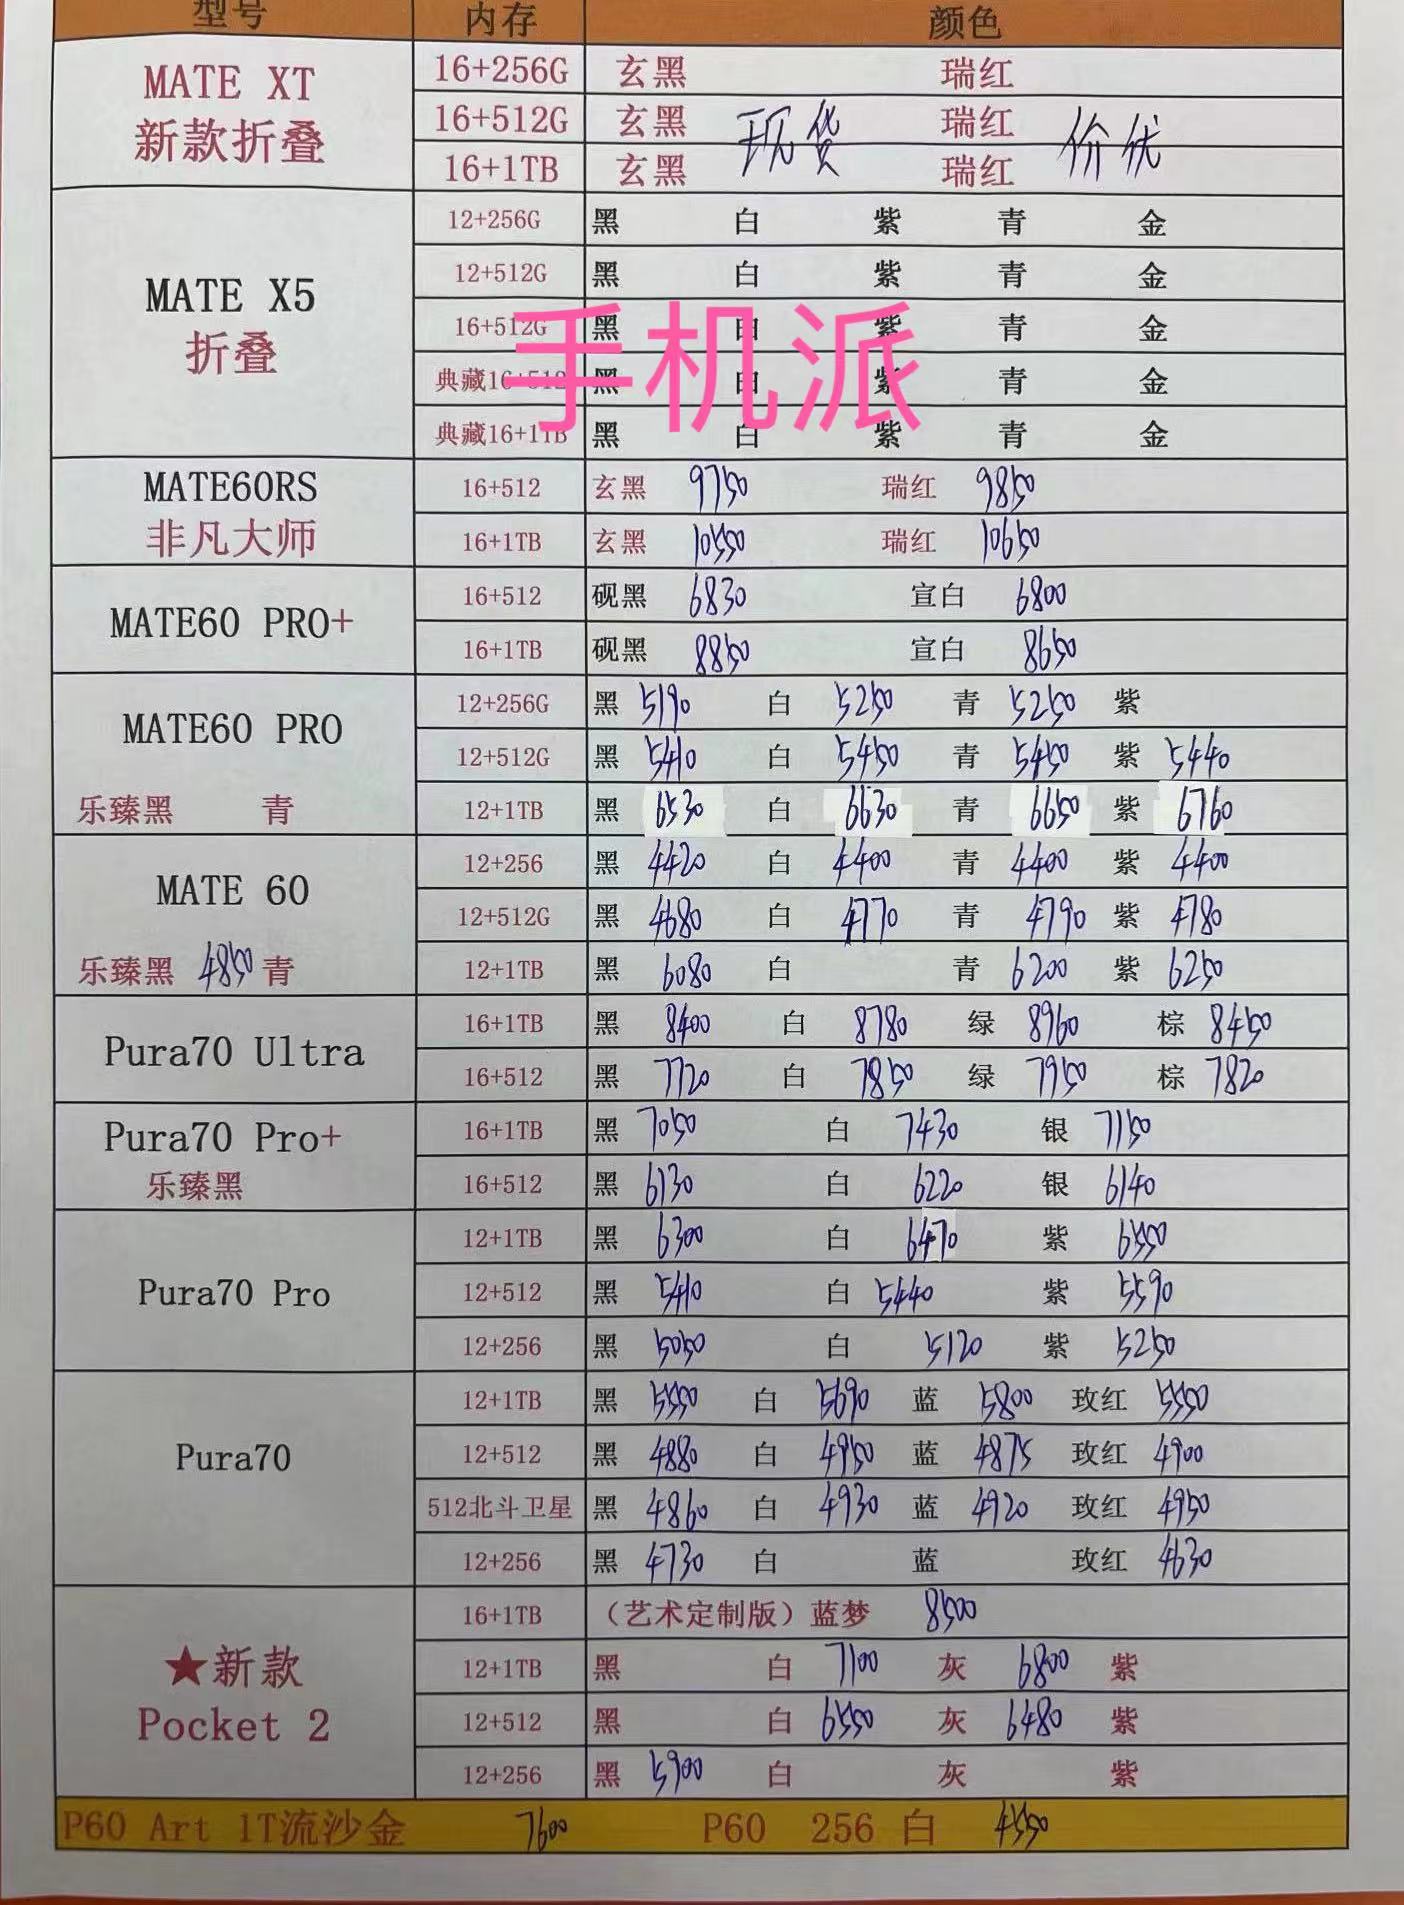 型号 内存 颜色
MATE XT 16+256G 玄黑 瑞红
新款折叠 16+512G 玄黑 现货 瑞红 价优
16+1TB 玄黑 瑞红
12+256G 黑 白 紫 青 金
12+512G 黑 白 紫 青 金
MATE X5 16+512G 黑 白 紫 青 金
折叠 典藏16+512 黑 白 紫 青 金
手机派
典藏16+1TB 黑 白 紫 青 金
MATE60RS 16+512 玄黑 9750 瑞红 9850
非凡大师 16+1TB 玄黑 10550 瑞红 10650
MATE60 PRO+ 16+512 砚黑 6830 宣白 6800
16+1TB 砚黑 8850 宣白 8650
MATE60 PRO 12+256G 黑 5190 白 5250 青 5250 紫
12+512G 黑 5410 白 5450 青 5450 紫 5440
乐臻黑 青 12+1TB 黑 6530 白 6630 青 6650 紫 6760
MATE 60 12+256 黑 4420 白 4400 青 4400 紫 4400
12+512G 黑 4680 白 4770 青 4790 紫 4780
乐臻黑 4850 青 12+1TB 黑 6080 白 青 6200 紫 6250
Pura70 Ultra 16+1TB 黑 8400 白 8780 绿 8960 棕 8450
16+512 黑 7720 白 7850 绿 7950 棕 7820
Pura70 Pro+ 16+1TB 黑 7050 白 7430 银 7150
乐臻黑 16+512 黑 6130 白 6220 银 6140
12+1TB 黑 6300 白 6470 紫 6550
Pura70 Pro 12+512 黑 5410 白 5440 紫 5590
12+256 黑 5050 白 5120 紫 5250
12+1TB 黑 5550 白 5690 蓝 5800 玫红 5550
Pura70 12+512 黑 4880 白 4950 蓝 4875 玫红 4900
512北斗卫星 黑 4860 白 4930 蓝 4920 玫红 4950
12+256 黑 4730 白 蓝 玫红 4630
16+1TB （艺术定制版）蓝梦 8500
★新款 12+1TB 黑 白 7100 灰 6800 紫
Pocket 2 12+512 黑 白 6550 灰 6480 紫
12+256 黑 5900 白 灰 紫
P60 Art 1T流沙金 7600 P60 256 白 4550